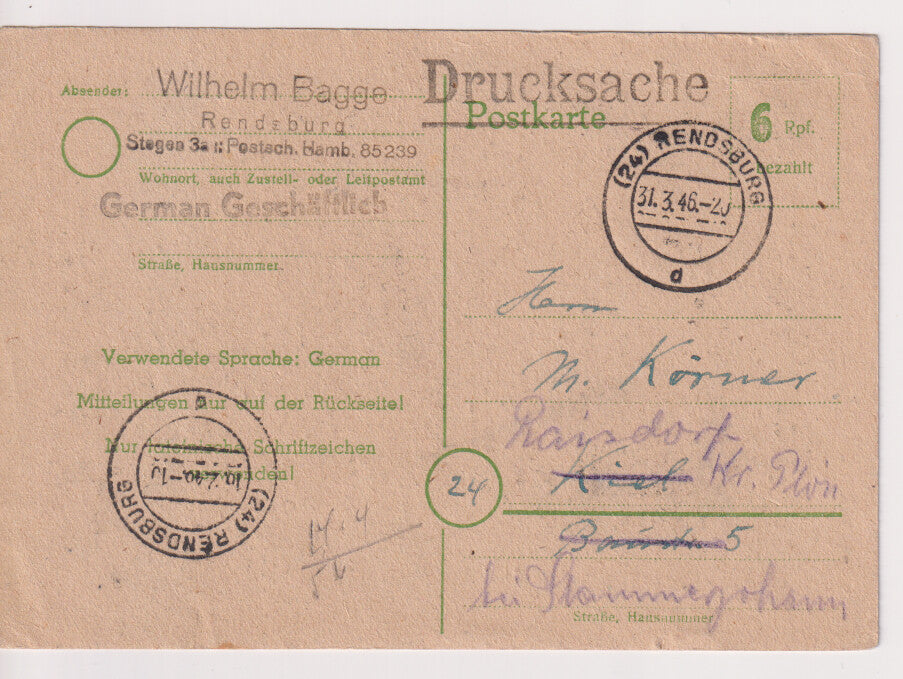 Absender:
Wilhelm Bagge
Rendsburg
Stegen 3a :: Postsch. Hamb. 85239
Wohnort, auch Zustell- oder Leitpostamt
German Geschäftlich
Straße, Hausnummer
Verwendete Sprache: German
Mitteilungen nur auf der Rückseite!
Nur lateinische Schriftzeichen
verwenden!
(24) RENDSBURG
Drucksache
Postkarte
6 Rpf.
bezahlt
(24) RENDSBURG
31.3.46.-20
d
Herrn
M. Körner
Raisdorf
24
Kiel Kr. Plön
5
bei Stammerjohann
Straße, Hausnummer